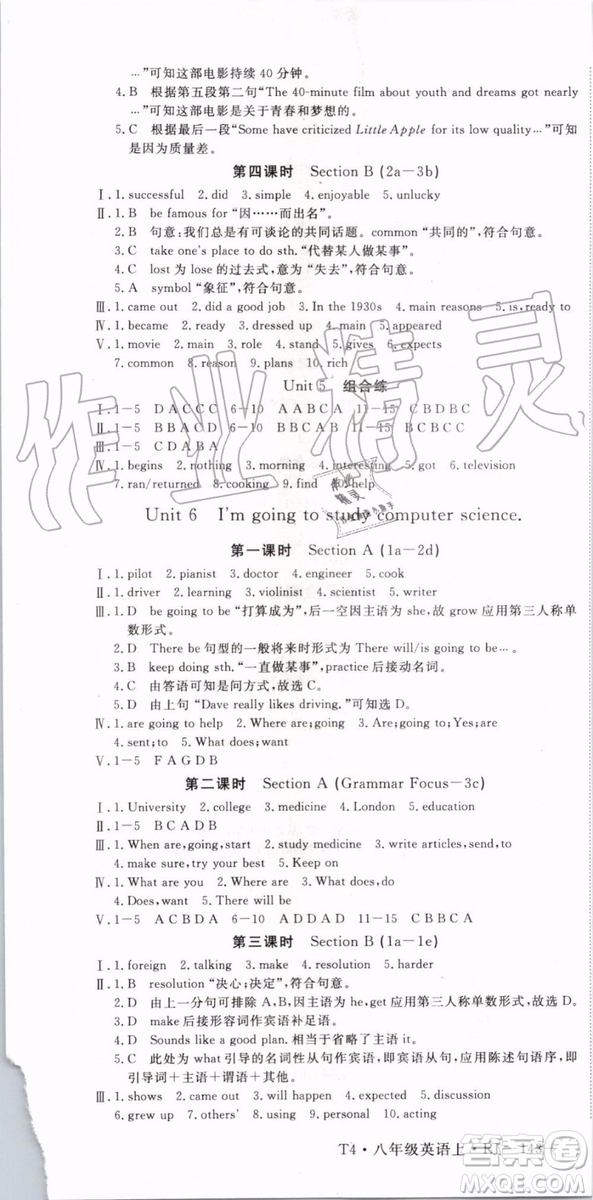 …”可知这部电影持续 40 分钟。
4. B 根据第五段第二句“The 40-minute film about youth and dreams got nearly
…”可知这部电影是关于青春和梦想的。
5. C 根据最后一段“Some have criticized Little Apple for its low quality…”可知
是因为质量差。
第四课时 Section B (2a－3b)
Ⅰ. 1. successful 2. did 3. simple 4. enjoyable 5. unlucky
Ⅱ. 1. B be famous for “因……而出名”。
2. B 句意：我们总是有可谈论的共同话题。common “共同的”，符合句意。
3. C take one's place to do sth. “代替某人做某事”。
4. C lost 为 lose 的过去式，意为“失去”，符合句意。
5. A symbol“象征”，符合句意。
Ⅲ. 1. came out 2. did a good job 3. In the 1930s 4. main reasons 5. is, ready to
Ⅳ. 1. became 2. ready 3. dressed up 4. main 5. appeared
Ⅴ. 1. movie 2. main 3. role 4. stand 5. gives 6. expects
7. common 8. reason 9. plans 10. rich
Unit 5 组合练
Ⅰ. 1－5 DACCC 6－10 AABCA 11－15 CBDBC
Ⅱ. 1－5 BBACD 6－10 BBCAB 11－15 CBDBC
Ⅲ. 1－5 CDABA
Ⅳ. 1. begins 2. nothing 3. morning 4. interesting 5. got 6. television
7. ran/returned 8. cooking 9. find 10. help
Unit 6 I'm going to study computer science.
第一课时 Section A (1a－2d)
Ⅰ. 1. pilot 2. pianist 3. doctor 4. engineer 5. cook
Ⅱ. 1. driver 2. learning 3. violinist 4. scientist 5. writer
Ⅲ. 1. D be going to be “打算成为”，后一空因主语为 she，故 grow 应用第三人称单
数形式。
2. D There be 句型的一般将来时形式为 There will/is going to be…。
3. B keep doing sth. “一直做某事”，practice 后接动名词。
4. C 由答语可知是问方式，故选 C。
5. D 由上句“Dave really likes driving.”可知选 D。
Ⅳ. 1. are going to help 2. Where are; going 3. Are; going to; Yes; are
4. sent; to 5. What does; want
Ⅴ. 1－5 FAGDB
第二课时 Section A (Grammar Focus－3c)
Ⅰ. 1. University 2. college 3. medicine 4. London 5. education
Ⅱ. 1－5 BCADB
Ⅲ. 1. When are, going, start 2. study medicine 3. write articles, send, to
4. make sure, try your best 5. Keep on
Ⅳ. 1. What are you 2. Where are 3. going to; aren't going to
4. Does, want 5. How will
Ⅴ. 1－5 ACBDA 6－10 ADDAD 11－15 CBBCA
第三课时 Section B (1a－1e)
Ⅰ. 1. foreign 2. talking 3. make 4. resolution 5. harder
Ⅱ. 1. B resolution “决心；决定”，符合句意。
2. D 由上一分句可排除 A、B，因主语为 he，get 应用第三人称单数形式，故选 D。
3. D make 后接形容词作宾语补足语。
4. D Sounds like a good plan. 相当于省略了主语 That。
5. C 此处为 what 引导的名词性从句作宾语，即宾语从句，应用陈述句语序，即
引导词＋主语＋谓语＋其他。
Ⅲ. 1. shows 2. came out 3. will happen 4. exciting 5. again
6. grew up 7. others' 8. using 9. personal 10. acting
T4·八年级英语上·RJ－143－
作业精灵